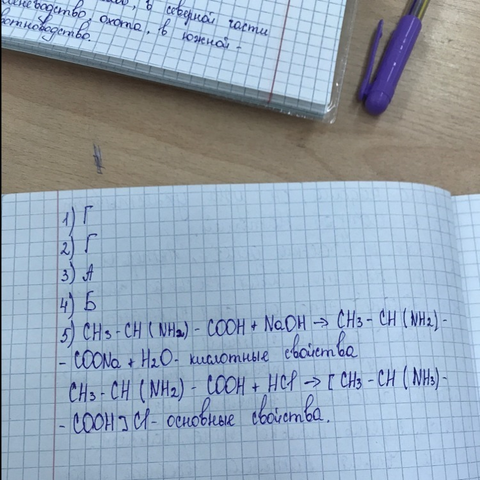 в северной части
охота, в южной -
1) Г
2) Г
3) А
4) Б
5) CH3 - CH (NH2) - COOH + NaOH → CH3 - CH (NH2) -
- COONa + H2O - кислотные свойства
CH3 - CH (NH2) - COOH + HCl → [ CH3 - CH (NH3) -
- COOH ] Cl - основные свойства.